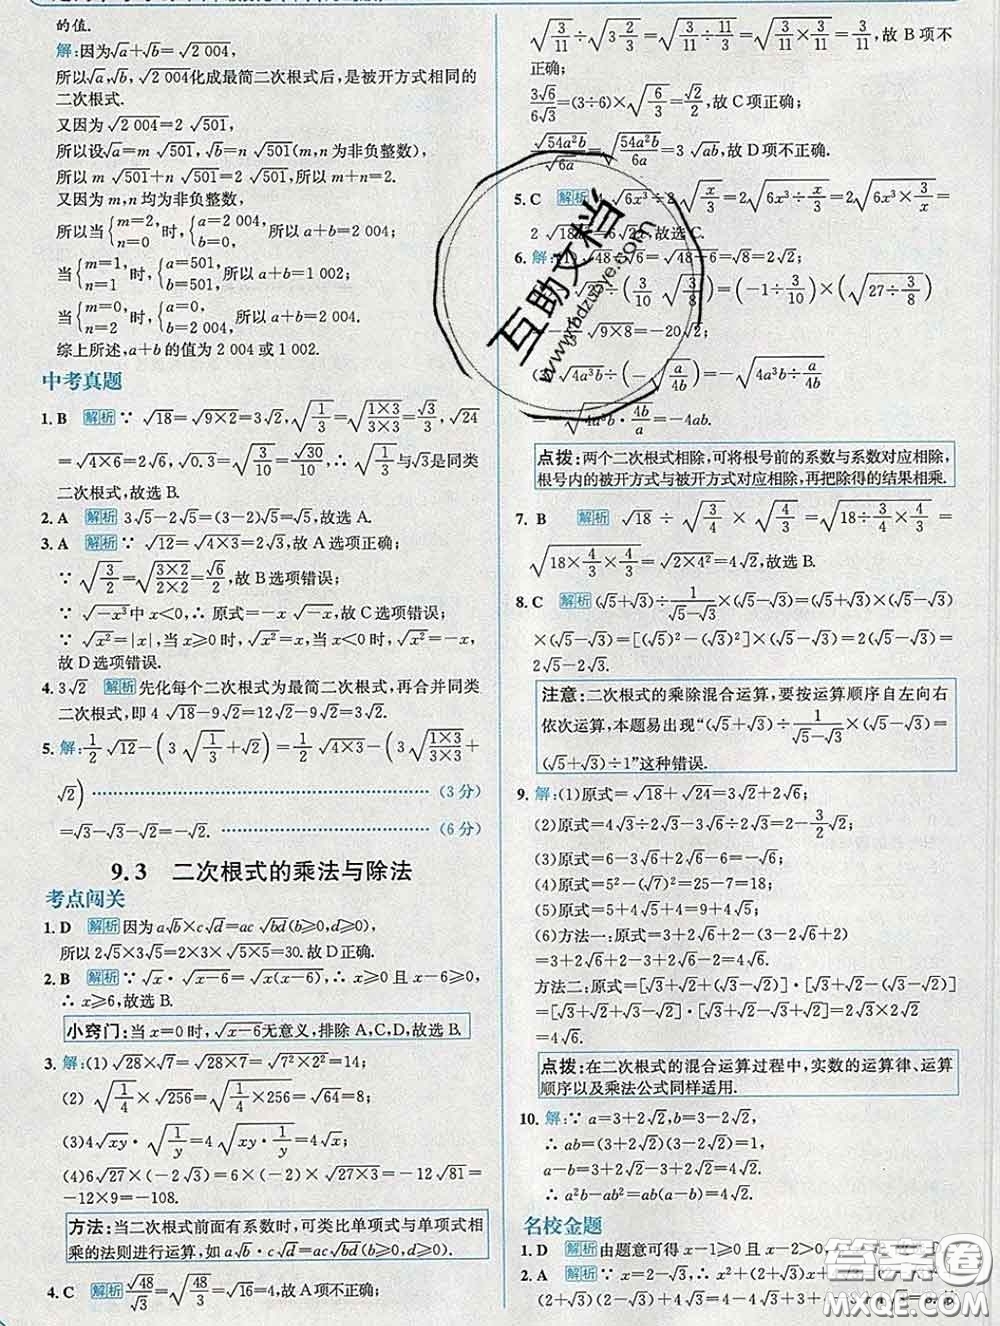 的值.
解:因为√a+√b=√2 004,
所以√a,√b,√2 004化成最简二次根式后,是被开方式相同的
二次根式.
又因为√2 004=2√501,
所以设√a=m√501,√b=n√501(m,n为非负整数),
所以m√501+n√501=2√501,所以m+n=2.
又因为m,n均为非负整数,
所以当{m=2, n=0 时,{a=2 004, b=0, 所以a+b=2 004;
当{m=1, n=1 时,{a=501, b=501, 所以a+b=1 002;
当{m=0, n=2 时,{a=0, b=2 004, 所以a+b=2 004.
综上所述,a+b的值为2 004或1 002.
中考真题
1. B 解析 ∵√18=√(9×2)=3√2,√(1/3)=√((1×3)/(3×3))=√3/3,√24
=√(4×6)=2√6,√0.3=√(3/10)=√30/10,∴√(1/3)与√3是同类
二次根式,故选B.
2. A 解析 3√5-2√5=(3-2)√5=√5,故选A.
3. A 解析 ∵√12=√(4×3)=2√3,故A选项正确;
∵√(3/2)=√((3×2)/(2×2))=√6/2,故B选项错误;
∵√(-x³)中x<0,∴原式=-x√(-x),故C选项错误;
∵√(x²)=|x|,当x≥0时,√(x²)=x,当x<0时,√(x²)=-x,
故D选项错误.
4. 3√2 解析 先化每个二次根式为最简二次根式,再合并同类
二次根式,即4√18-9√2=12√2-9√2=3√2.
5. 解:1/2√12-(3√(1/3)+√2)=1/2√(4×3)-(3√((1×3)/(3×3))+
√2) (3分)
=√3-√3-√2=-√2. (6分)
9.3 二次根式的乘法与除法
考点闯关
1. D 解析 因为a√b×c√d=ac√bd(b≥0,d≥0),
所以2√5×3√5=2×3×√(5×5)=30.故D正确.
2. B 解析 ∵√x·√(x-6)=√(x(x-6)),∴x≥0且x-6≥0,
∴x≥6,故选B.
小窍门:当x=0时,√(x-6)无意义,排除A,C,D,故选B.
3. 解:(1)√28×√7=√(28×7)=√(7²×2²)=14;
(2)√(1/4)×√256=√(1/4×256)=√64=8;
(3)4√xy·√(1/y)=4√(xy·1/y)=4√x;
(4)6√27×(-2√3)=6×(-2)×√(27×3)=-12√81=
-12×9=-108.
方法:当二次根式前面有系数时,可类比单项式与单项式相
乘的法则进行运算,如a√b·c√d=ac√bd(b≥0,d≥0).
4. C 解析 √48/√3=√(48/3)=√16=4,故A项不正确;
√(3/11)÷√(3 2/3)=√(3/11÷11/3)=√(3/11×3/11)=3/11,故B项不
正确;
3√6/6√3=(3÷6)×√(6/3)=√2/2,故C项正确;
√(54a²b)/√6a=√(54a²b/6a)=3√ab,故D项不正确.
5. C 解析 √(6x³)÷2√(x/3)=2√(6x³÷x/3)=2√(6x³×3/x)=
2√18x²=6√2x,故选C.
6. 解:(1)√48÷√6=√(48÷6)=√8=2√2;
√27÷(3/10√(3/8))=(-1÷3/10)×√(27÷3/8)
√(9×8)=-20√2;
√(4a³b)÷(-√(a/4b))=-√(4a³b÷a/4b)
=-√(4a³b·4b/a)=-4ab.
点拨:两个二次根式相除,可将根号前的系数与系数对应相除,
根号内的被开方式与被开方式对应相除,再把除得的结果相乘.
7. B 解析 √18÷√(3/4)×√(4/3)=√(18÷3/4×4/3)=
√(18×4/3×4/3)=√(2×4²)=4√2,故选B.
8. C 解析 (√5+√3)÷1/(√5-√3)×(√5-√3)=(√5+√3)×(√5-√3)
×(√5-√3)=[(√5)²-(√3)²]×(√5-√3)=2×(√5-√3)=
2√5-2√3.
注意:二次根式的乘除混合运算,要按运算顺序自左向右
依次运算,本题易出现“(√5+√3)÷1/(√5-√3)×(√5-√3)=
(√5+√3)÷1”这种错误.
9. 解:(1)原式=√18+√24=3√2+2√6;
(2)原式=4√3÷2√3-3√6÷2√3=2-3/2√2;
(3)原式=6-3√6+2√6-6=-√6;
(4)原式=18-12=6;
(5)原式=5+4√5+4=9+4√5;
(6)方法一:原式=3+2√6+2-(3-2√6+2)
=3+2√6+2-3+2√6-2=4√6.
方法二:原式=[√3+√2+(√3-√2)]×[√3+√2-(√3-√2)]
=[√3+√2+√3-√2]×[√3+√2-√3+√2]=2√3×2√2
=4√6.
点拨:在二次根式的混合运算过程中,实数的运算律、运算
顺序以及乘法公式同样适用.
10. 解:∵a=3+2√2,b=3-2√2,
∴ab=(3+2√2)(3-2√2)=1,
a-b=3+2√2-3+2√2=4√2,
∴a²b-ab²=ab(a-b)=4√2.
名校金题
1. D 解析 由题意可得x-1≥0且x-2>0,
2. A 解析 ∵x=2-√3,∴
互助文档
www.bdzuoye.com
答案圈
MXQE.COM